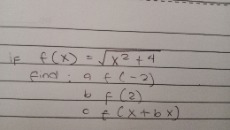 if f(x) = √x² + 4
find : a f (-2)
b f (2)
c f (x + bx)